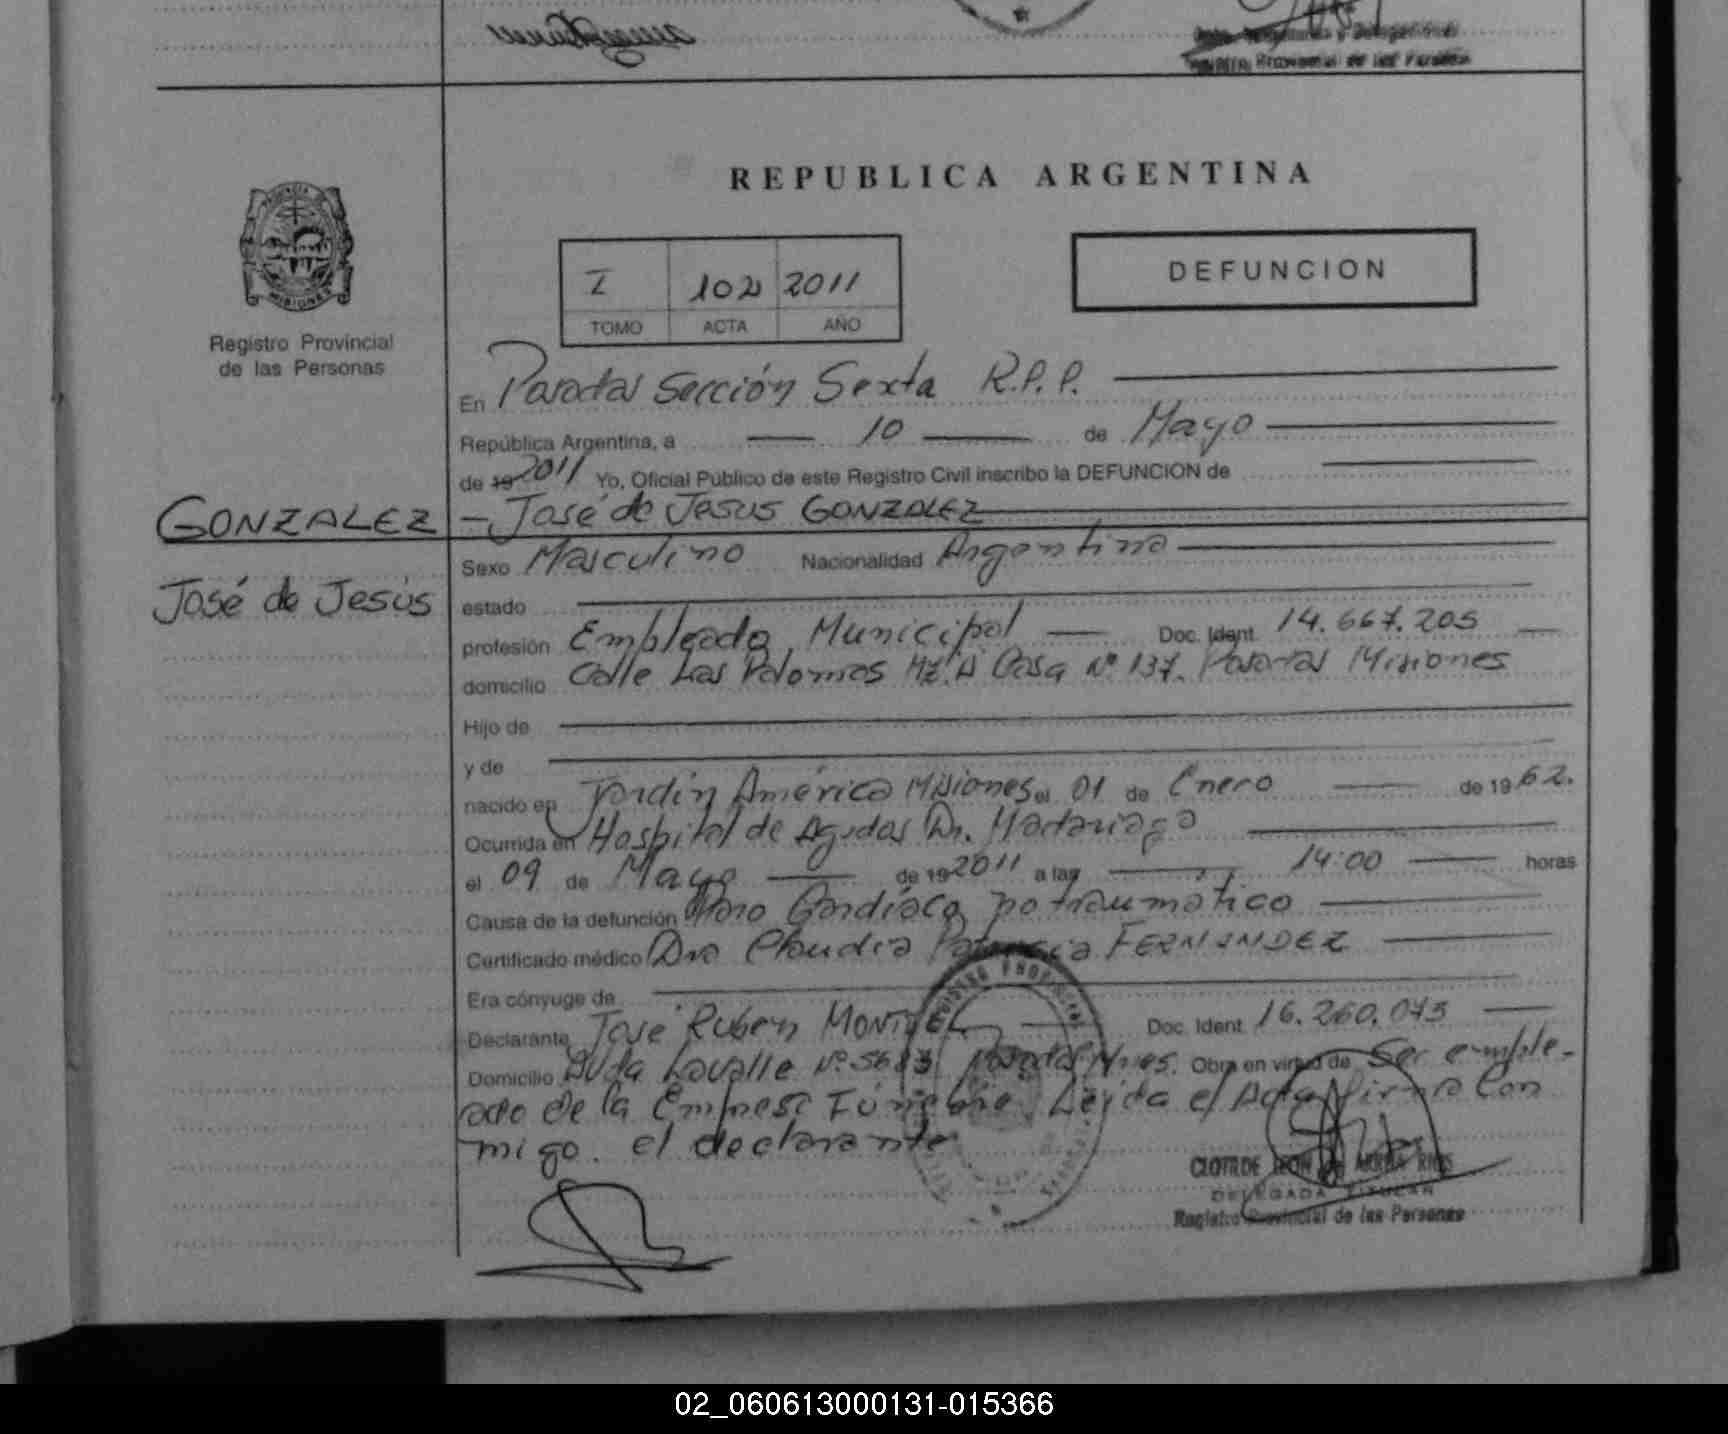 REPUBLICA ARGENTINA
PROVINCIA
MISIONES
Registro Provincial
de las Personas
I 102 2011
TOMO ACTA AÑO
DEFUNCION
En Posadas Sección Sexta R.P.P.
República Argentina, a 10 de Mayo
de 19 2011 Yo, Oficial Público de este Registro Civil inscribo la DEFUNCION de
GONZALEZ
José de Jesús
José de Jesus GONZALEZ
Sexo Masculino Nacionalidad Argentina
estado
profesión Empleado Municipal Doc. Ident. 14.667.205
domicilio Calle Las Palomas Mz. A Casa Nº 137. Posadas Misiones
Hijo de
y de
nacido en Jardín América Misiones el 01 de Enero de 1962.
Ocurrida en Hospital de Agudos Dr. Madariaga
el 09 de Mayo de 19 2011 a las 14:00 horas
Causa de la defunción Paro Cardíaco potraumático
Certificado médico Dra Claudia Patricia FERNANDEZ
Era cónyuge de
Declarante José Ruben MONTIEL Doc. Ident. 16.260.073
Domicilio Avda Lavalle Nº 5683 Posadas Mnes. Obra en virtud de Ser emple-
ado de la Empresa Fúnebre. Leída el Acta firma Con
migo. el declarante
CLOTILDE LEON de ARRUA RIOS
DELEGADA TITULAR
Registro Provincial de las Personas
02_060613000131-015366